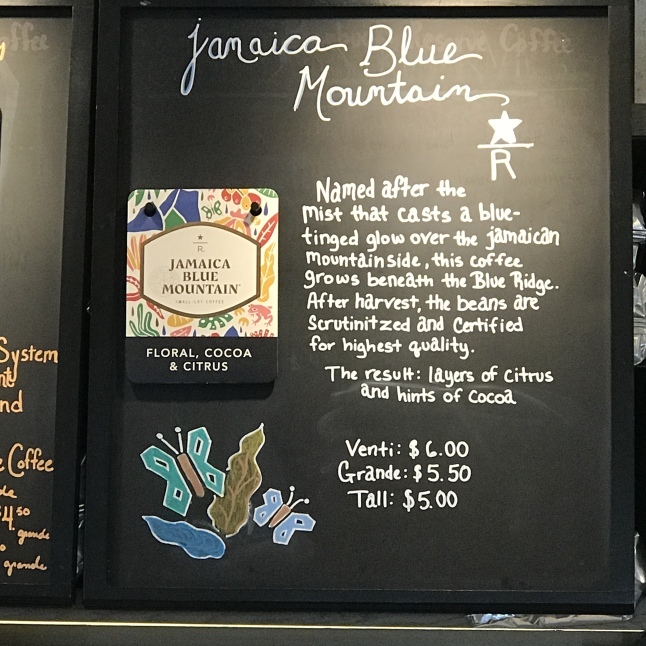 Jamaica Blue
Mountain
R
Named after the
mist that casts a blue-
tinged glow over the jamaican
mountainside, this coffee
grows beneath the Blue Ridge.
After harvest, the beans are
Scrutinitzed and Certified
for highest quality.
The result: layers of Citrus
and hints of Cocoa
Venti: $6.00
Grande: $5.50
Tall: $5.00
R
JAMAICA
BLUE
MOUNTAIN
SMALL-LOT COFFEE
FLORAL, COCOA
& CITRUS
System
nd
Coffee
grande
grande